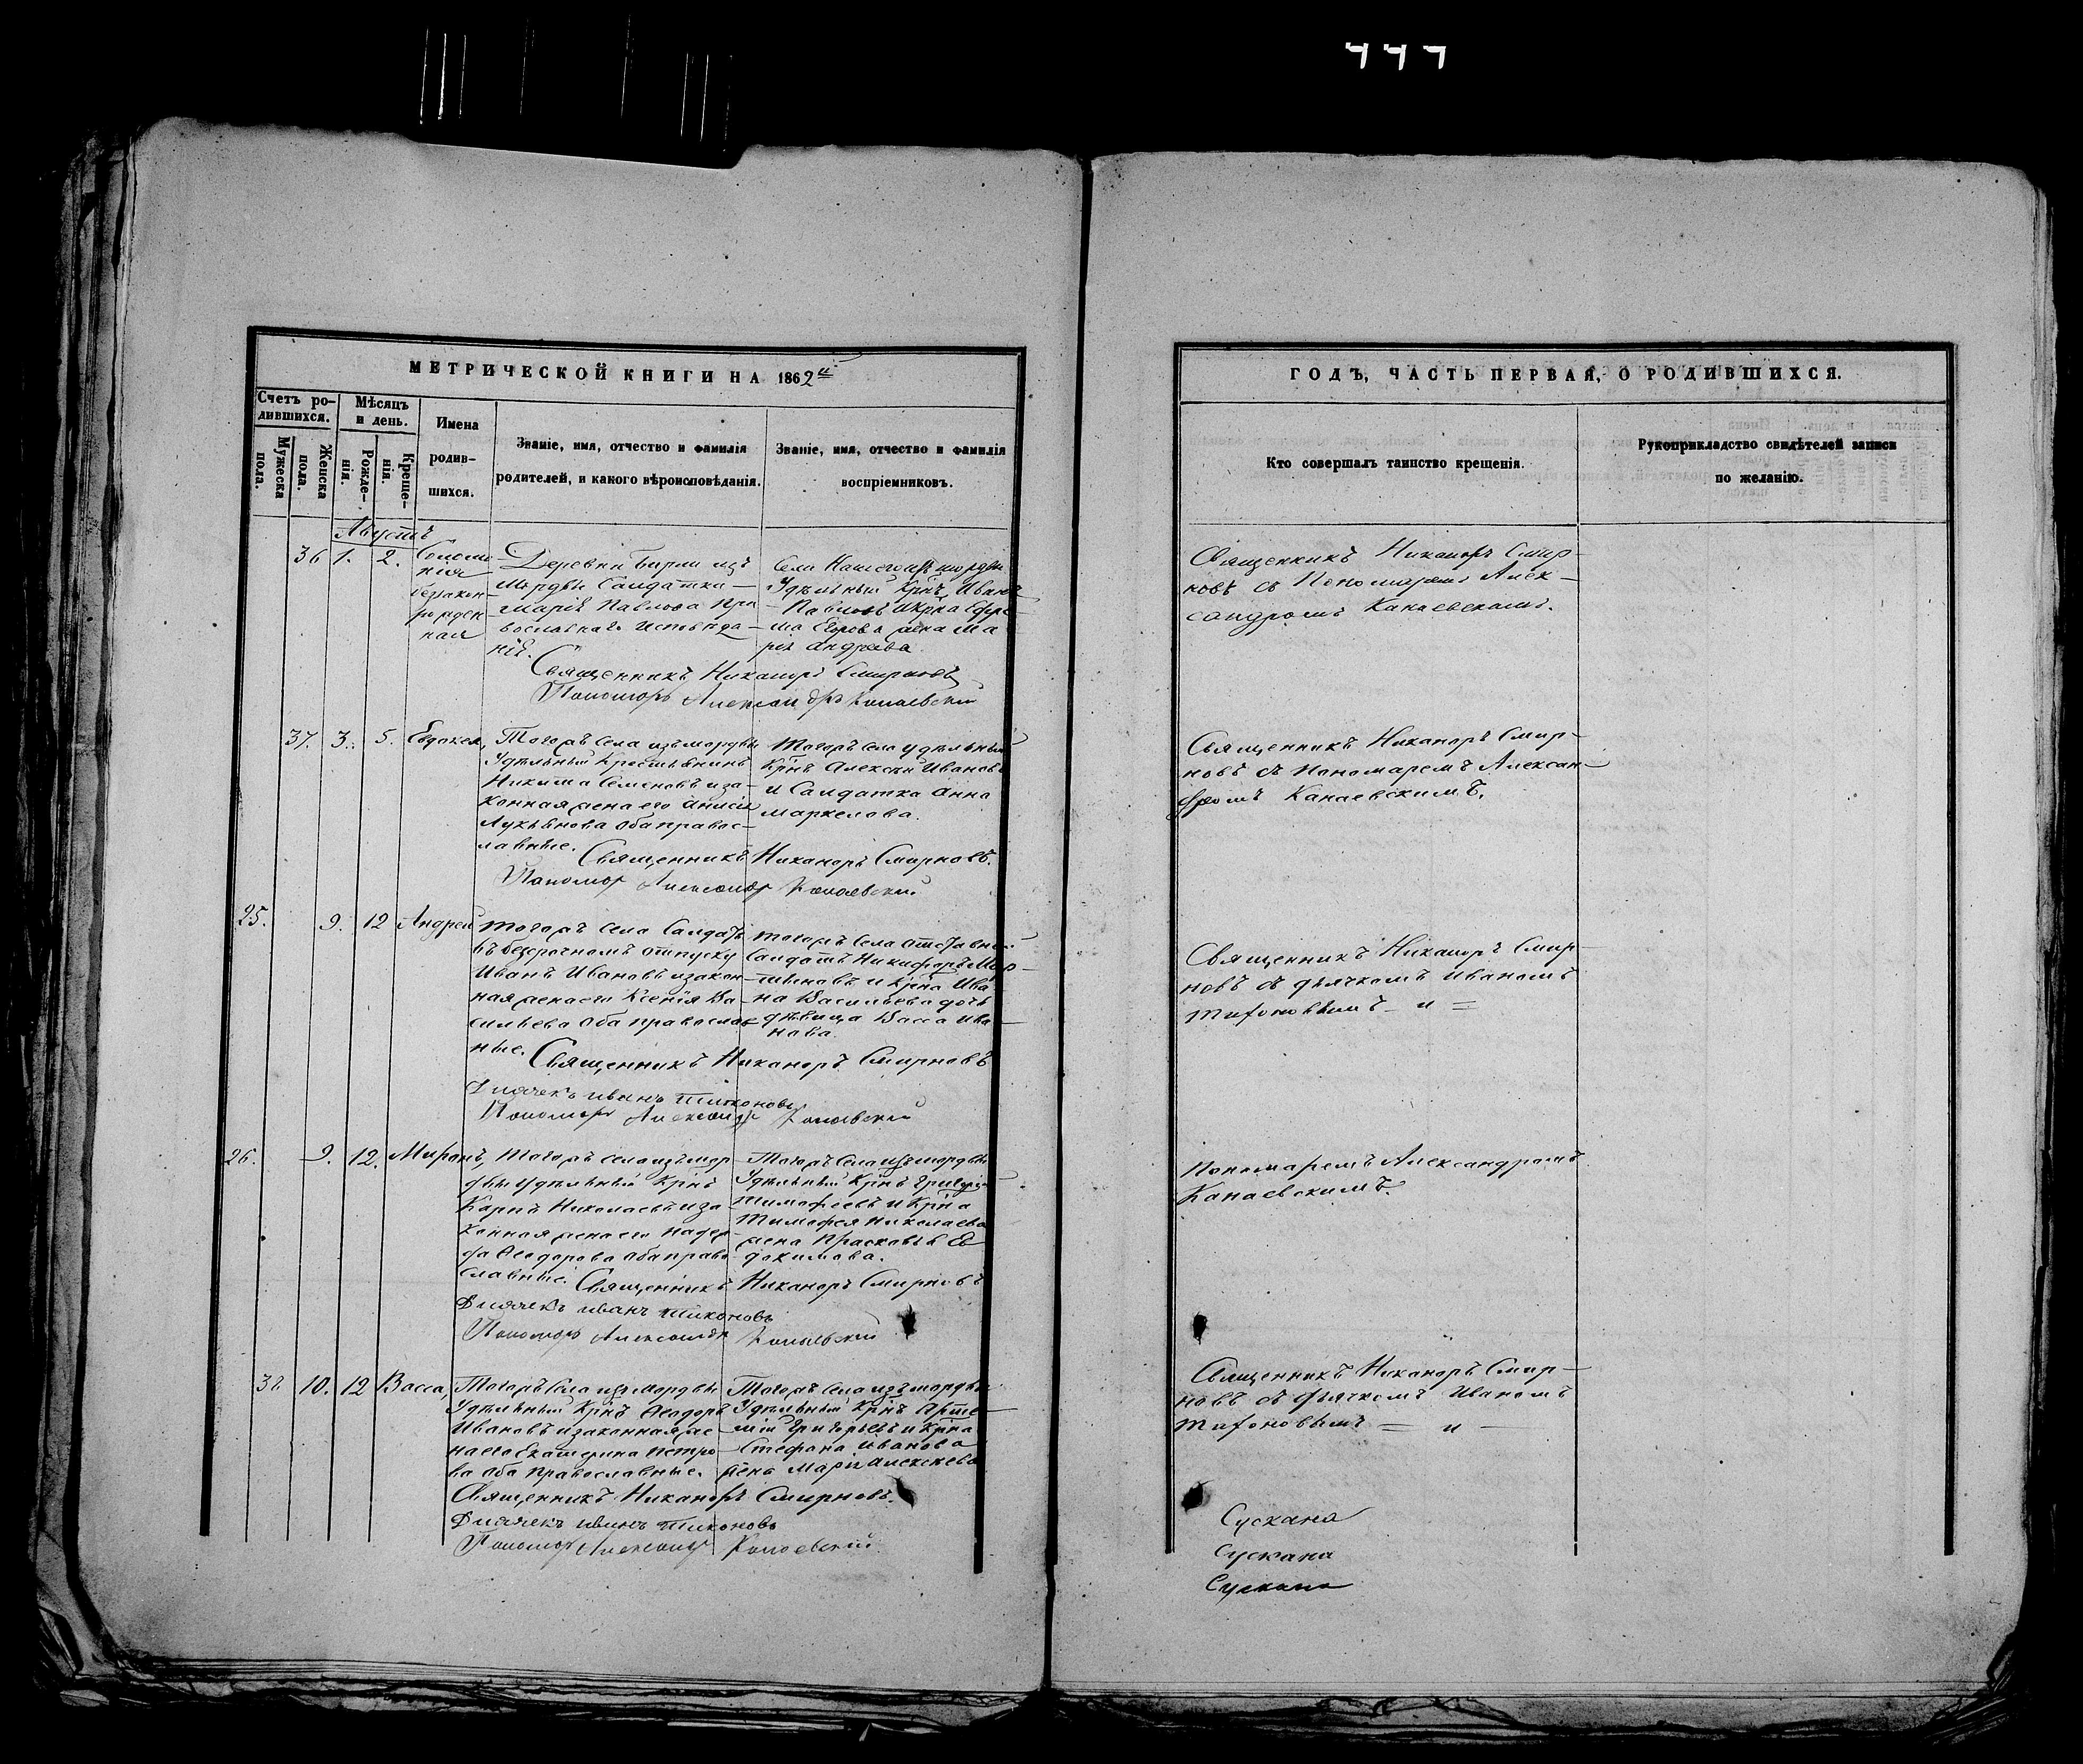 МЕТРИЧЕСКОЙ КНИГИ НА 1862й
Счетъ ро-
дившихся.
Мужеска
пола.
Женска
пола.
Мѣсяцъ
и день.
Рожде-
нія.
Креще-
нія.
Имена
родив-
шихся.
Званіе, имя, отчество и фамилія
родителей, и какого вѣроисповѣданія.
Званіе, имя, отчество и фамилія
воспріемниковъ.
Августъ
36 1. 2.
незакон-
рожден-
ная
Деревни изъ
Мордвы Салдатка
Марія Павлова Пра
вославнаго Исповѣда-
нія.
Села
Удѣльный Крнъ Иванъ
Павловъ и Крна Ефре
ма Егорова жена Ма
рія Андреева
Священникъ Никаноръ Смирновъ
Пономорь Александръ Канаевскій
37. 3. 5. Евдокея,
Тогожъ села изъ мордвы
Удѣльный Крестьянинъ
Никита Семеновъ и за-
конная жена его
Лукьянова оба правос-
лавные.
Тогожъ села удѣльный
Крнъ Алексѣй Ивановъ
и Салдатка Анна
Маркелова.
Священникъ Никаноръ Смирновъ.
Пономор Александр Канаевский
25. 9. 12 Андрей
Тогожъ села Салдатъ
въ безсрочномъ отпуску
Иванъ Ивановъ и закон-
ная жена его Ксенія Ва-
сильева оба православ
ные.
Тогожъ Села отставной
Салдатъ Никифоръ Мар-
тыновъ и Крна Ива
на Васильева дочь
дѣвица Васса Ива
нова.
Священникъ Никаноръ Смирновъ
Дьячекъ Иванъ Тихоновъ
Пономорь Александр Канаевский
26. 9. 12. Миронъ,
Тогожъ села изъ мор
двы удѣльный Крнъ
Карпъ Николаевъ и за
конная жена его
Ѳеодорова оба право
славные.
Тогожъ Села изъ мордвы
Удѣльный Крнъ Григорій
Тимофеевъ и Крна
Тимофея Николаева
жена Прасковья Ев
докимова.
Священникъ Никаноръ Смирновъ
Дьячекъ Иванъ Тихоновъ
Пономорь Александр Канаевский
38. 10. 12 Васса,
Тогожъ Села изъ мордвы
Удѣльный Крнъ Ѳеодоръ
Ивановъ и законная же
на его Екатерина Петро
ва оба православные.
Тогожъ села изъ мордвы
Удѣльный Крнъ Арте
мій Григорьевъ и Крна
Стефана Иванова
жена Марія Алексѣева
Священникъ Никаноръ Смирновъ.
Дьячекъ Иванъ Тихоновъ
Пономор Александр Канаевский
ГОДЪ, ЧАСТЬ ПЕРВАЯ, О РОДИВШИХСЯ.
Кто совершалъ таинство крещенія.
Рукоприкладство свидѣтелей записи
по желанію.
Священникъ Никаноръ Смир-
новъ съ Пономаремъ Алек-
сандромъ Канаевскимъ.
Священникъ Никаноръ Смир-
новъ съ Пономаремъ Алексан-
дромъ Канаевскимъ.
Священникъ Никаноръ Смир-
новъ съ дьячкомъ Иваномъ
Тихоновымъ - и =
Пономаремъ Александромъ
Канаевскимъ.
Священникъ Никаноръ Смир-
новъ съ дьячкомъ Иваномъ
Тихоновымъ = и -
Сускана
Сускана
Сускана